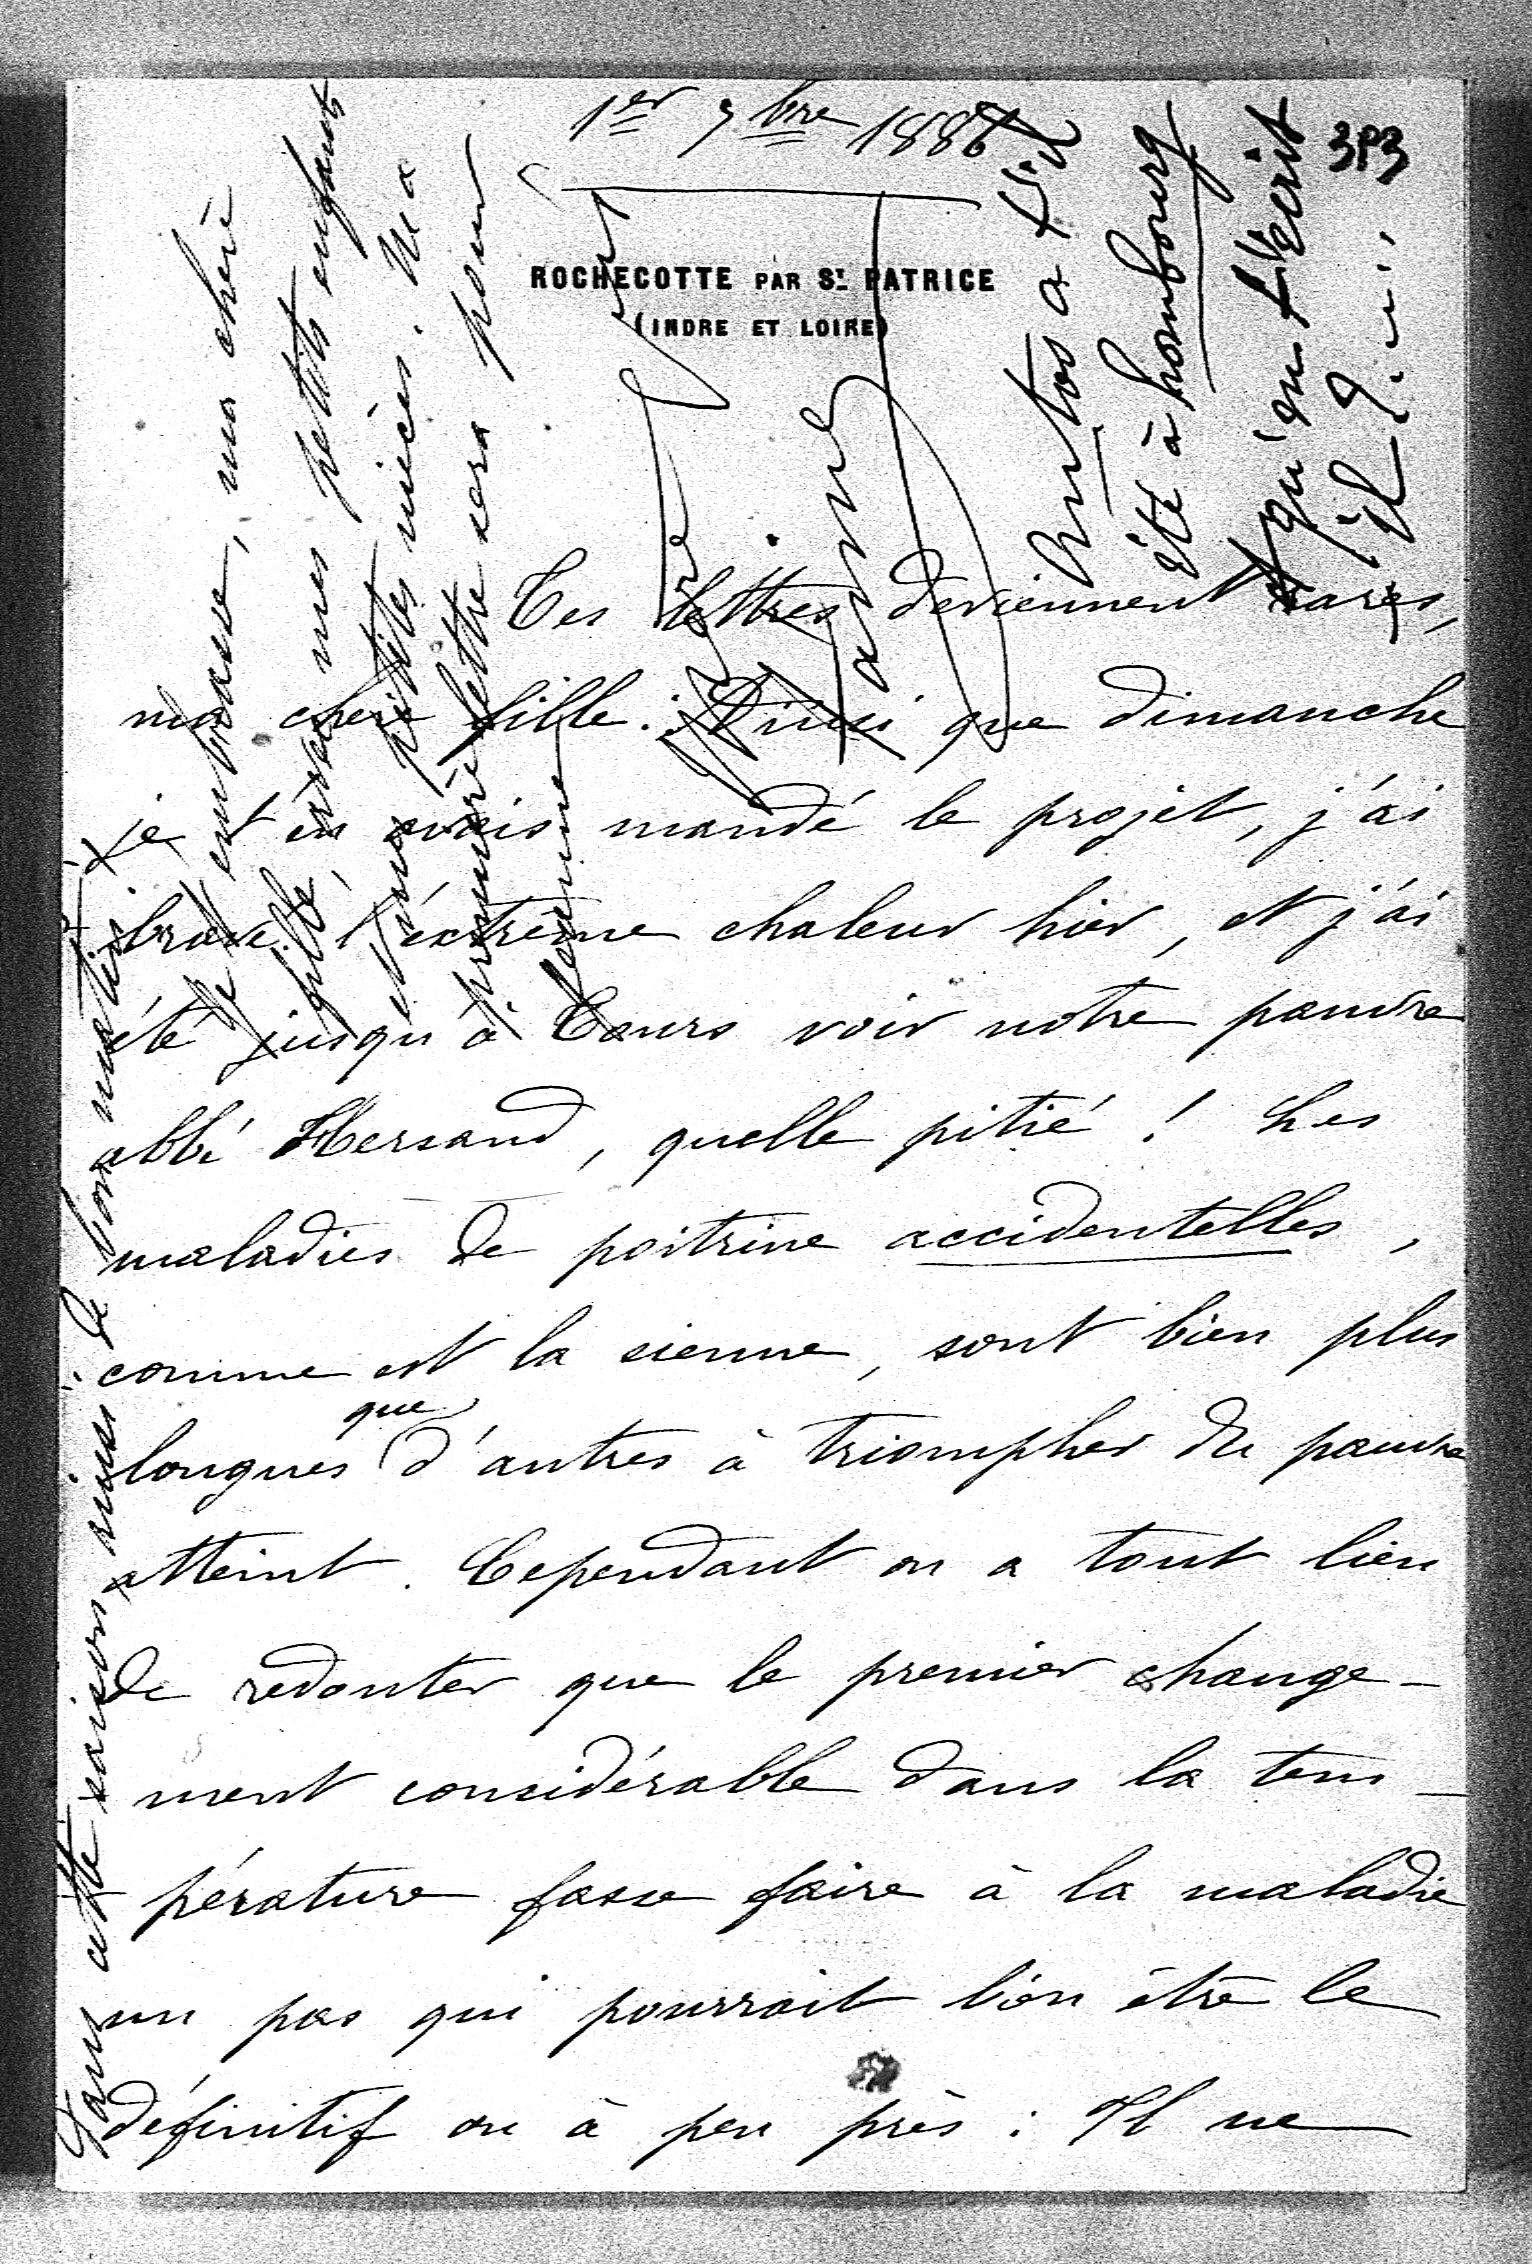 1er 7bre 1886
393
ROCHECOTTE PAR ST. PATRICE
(INDRE ET LOIRE)
Tes lettres deviennent rares,
ma chere fille. Ainsi que dimanche
je t'en avais mandé le projet, j'ai
bravé l'extrême chaleur hier, et j'ai
été jusqu'à Tours voir notre pauvre
abbé Hersand, quelle pitié ! Les
maladies de poitrine accidentelles,
comme est la sienne, sont bien plus
longues que d'autres à triompher du pauvre
atteint. Cependant on a tout lieu
de redouter que le premier change-
ment considérable dans la tem-
pérature fasse faire à la maladie
un pas qui pourrait bien être le
définitif ou à peu près : Il ne
Dans cette saison ainsi : le bon matin
je t'embrasse, ma chère
fille, avec mes petits enfants
et mes petites nièces. Ma
première lettre sera pour
Jeanne
mère
a t'il
été à hombourg
qu'on l'écrit